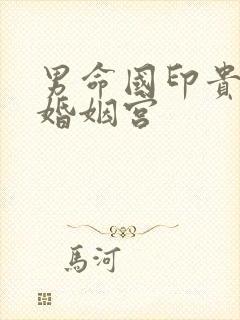 男命國印貴
婚姻宮
馬河